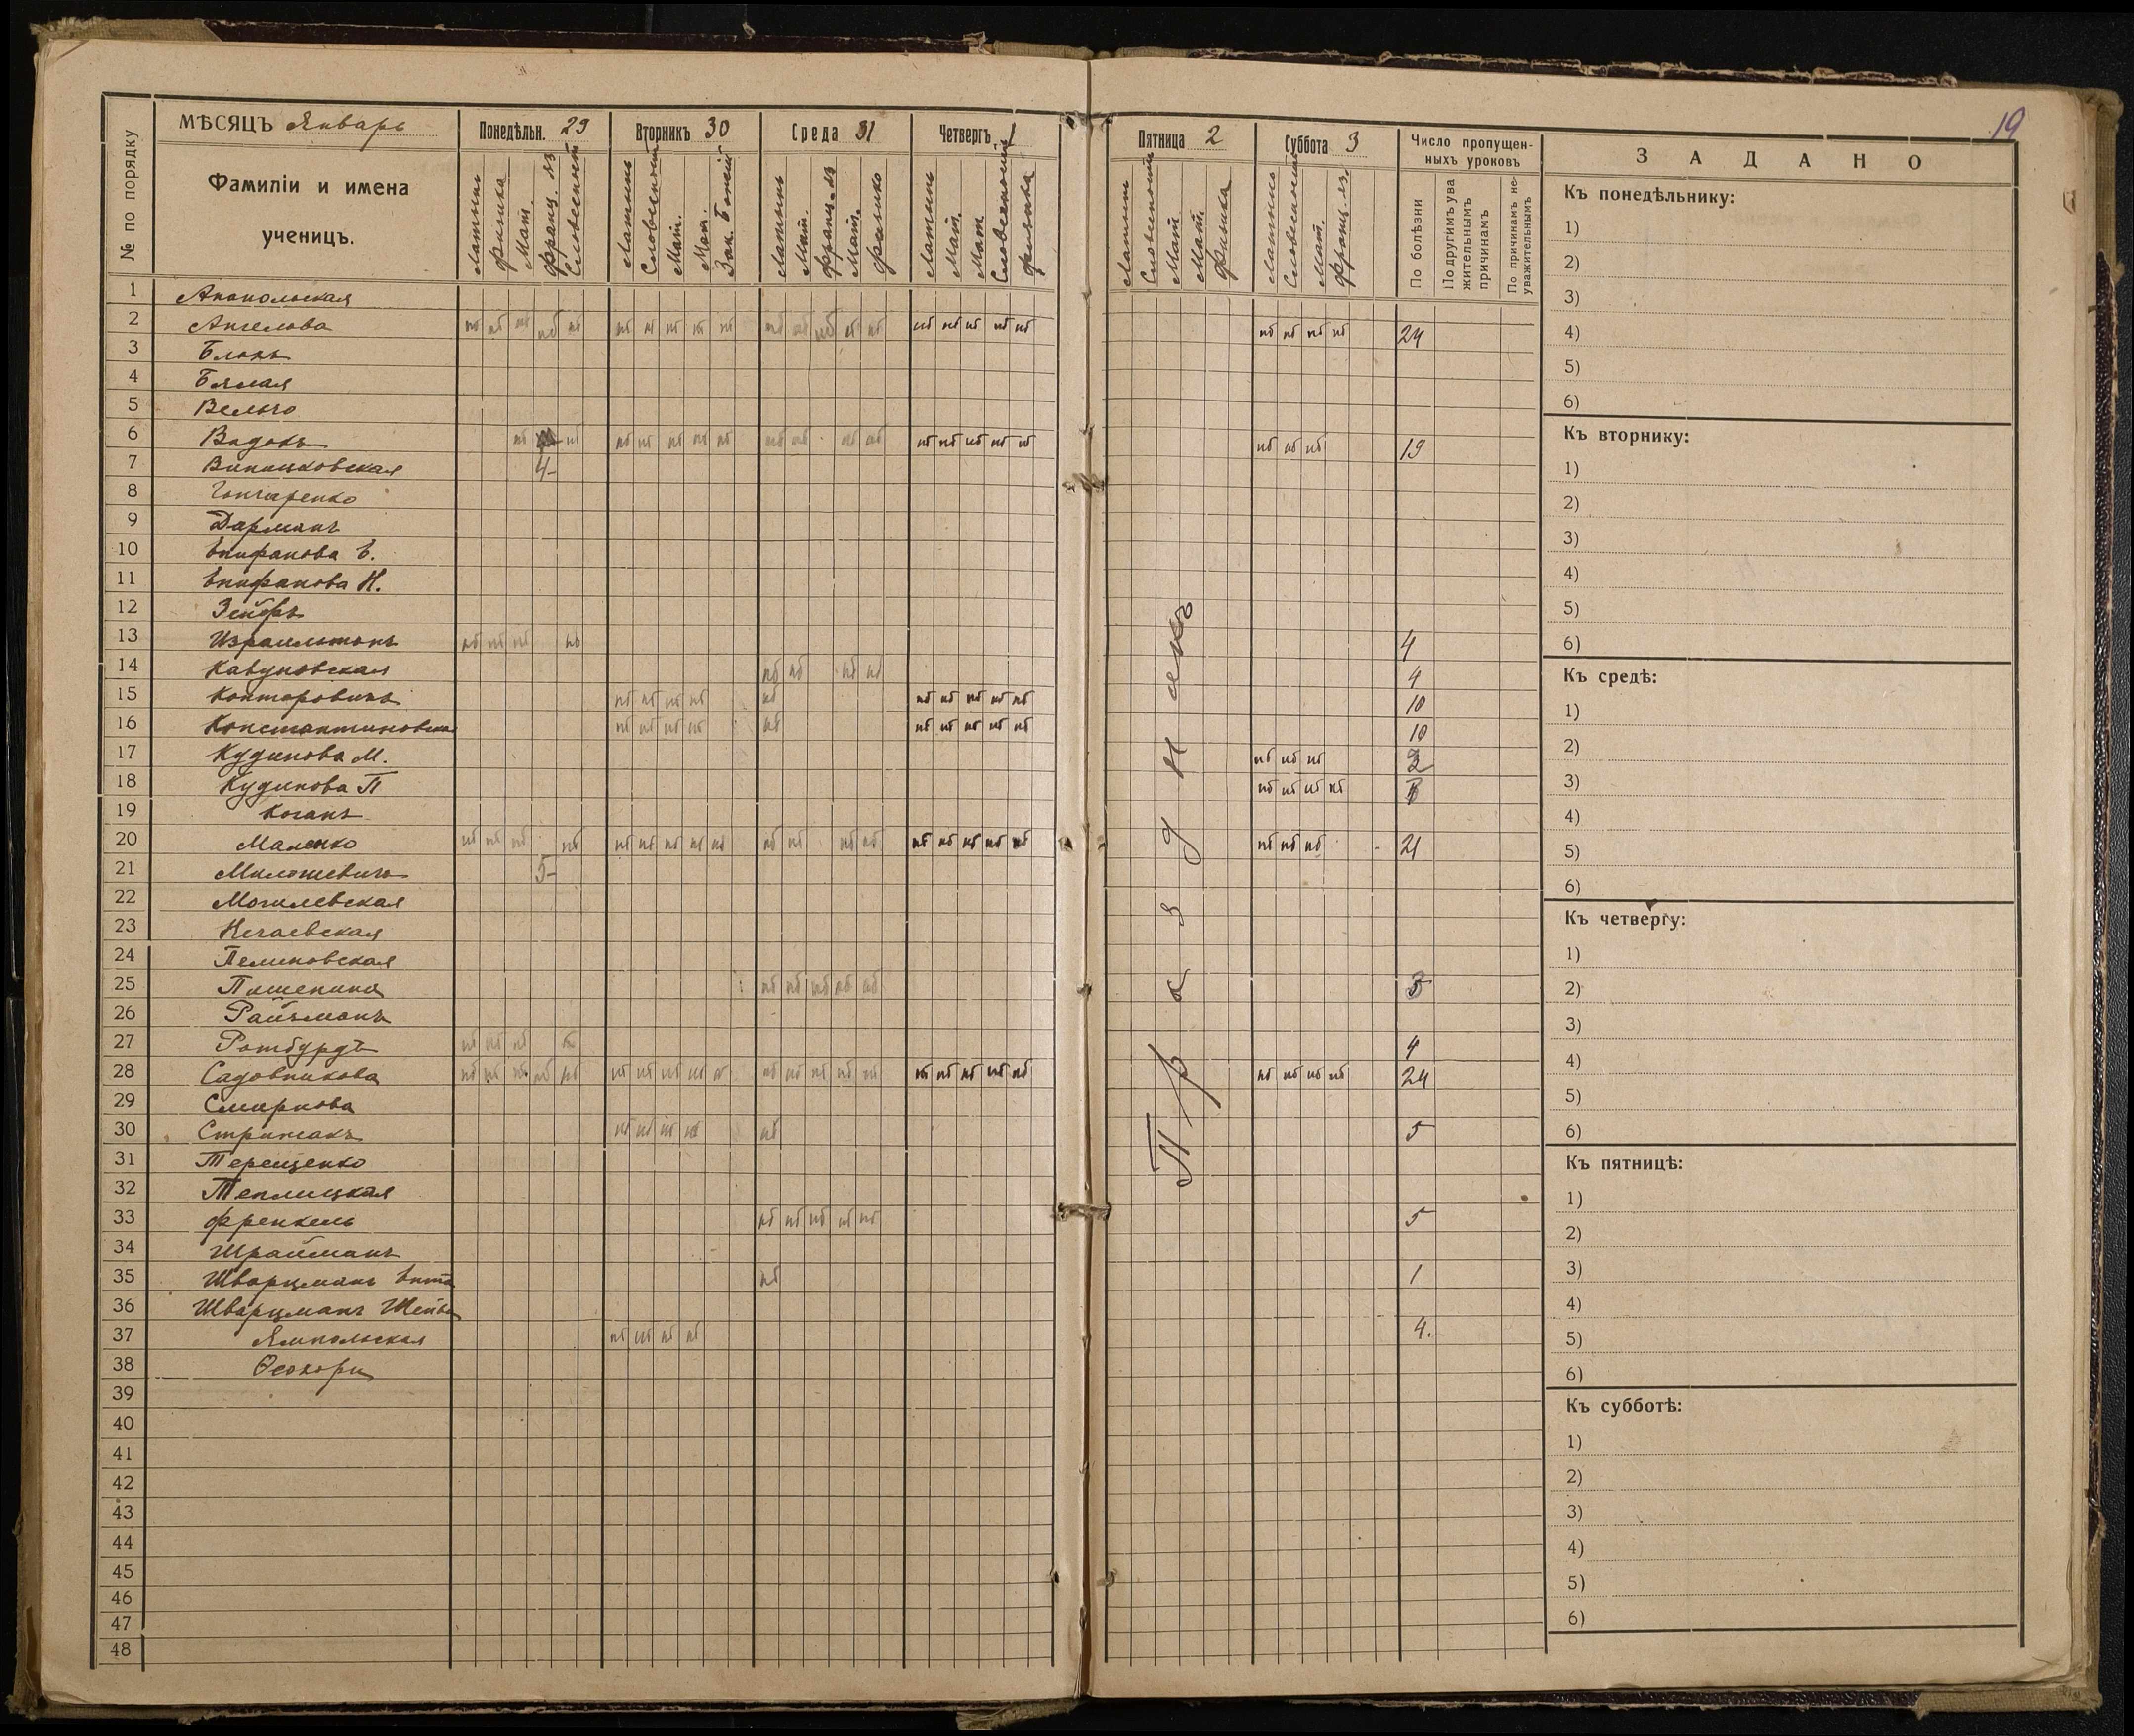 19
МѢСЯЦЪ Январь
Понедѣльн. 29
Вторникъ 30
Среда 31
Четвергъ 1
Пятница 2
Суббота 3
№ по порядку
Фамиліи и имена
ученицъ.
Латынь
Физика
Мат.
Франц. яз
Словесност
Латынь
Словесность
Мат.
Мат.
Зак. Божій
Латынь
Мат.
Франц. яз
Мат.
Физика
Латынь
Мат.
Мат
Словесность
Физика
Латынь
Словесность
Мат
Мат.
Физика
Латынь
Словесность
Мат.
Франц. яз.
Число пропущен-
ныхъ уроковъ
По болѣзни
По другимъ ува
жительнымъ
причинамъ
По причинамъ не-
уважительнымъ
1 Анапольская
2 Ангелова нб нб нб нб нб нб нб нб нб нб нб нб нб нб нб нб нб нб нб нб нб нб нб нб 24
3 Блокъ
4 Бялая
5 Вельчо
6 Видокъ нб нб нб нб нб нб нб нб нб нб нб нб нб нб нб нб нб нб нб 19
7 4-
8 Гончаренко
9 Дарманъ
10 Епифанова Е.
11 Епифанова Н.
12 Зейферъ
13 Израильтонъ нб нб нб нб 4
14 Кавуновская нб нб нб нб 4
15 Конторовичъ нб нб нб нб нб нб нб нб нб нб 10
16 Константиновская нб нб нб нб нб нб нб нб нб нб 10
17 Кудинова М. нб нб нб 3
18 Кудинова П нб нб нб нб
19 Коганъ
20 Маленко нб нб нб нб нб нб нб нб нб нб нб нб нб нб нб нб нб нб нб нб нб 21
21 Милошевичъ 5-
22 Могилевская
23 Нечаевская
24 Пелиновская
25 Пишенина нб нб нб нб нб 5
26 Райзманъ
27 Ротбурдъ нб нб нб нб 4
28 Садовникова нб нб нб нб нб нб нб нб нб нб нб нб нб нб нб нб нб нб нб нб нб нб нб нб 24
29 Смирнова
30 Стрижакъ нб нб нб нб нб 5
31 Терещенко
32 Теплицкая
33 Френкель нб нб нб нб нб 5
34 Шрайманъ
35 Шварцманъ Ента нб 1
36 Шварцманъ Шейва
37 Ямпольская нб нб нб нб 4.
38 Феохори
39
40
41
42
43
44
45
46
47
48
Праздникъ
ЗАДАНО
Къ понедѣльнику:
1)
2)
3)
4)
5)
6)
Къ вторнику:
1)
2)
3)
4)
5)
6)
Къ средѣ:
1)
2)
3)
4)
5)
6)
Къ четвергу:
1)
2)
3)
4)
5)
6)
Къ пятницѣ:
1)
2)
3)
4)
5)
6)
Къ субботѣ:
1)
2)
3)
4)
5)
6)